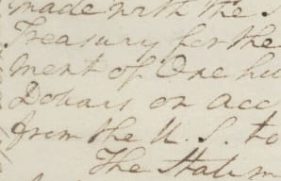 made with the S
Treasury for the
ment of One hu
Dollars on acc
from the U. S. to
The Statem